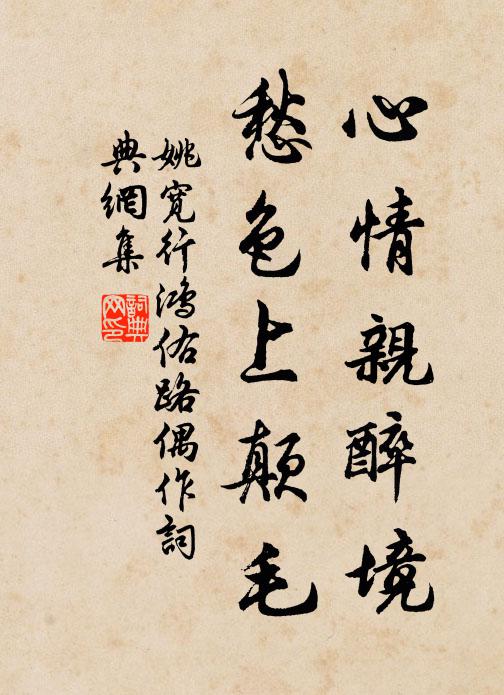 心情親醉境
愁色上顛毛
姚寬行鴻佑路偶作詞
典網集
詞典网印